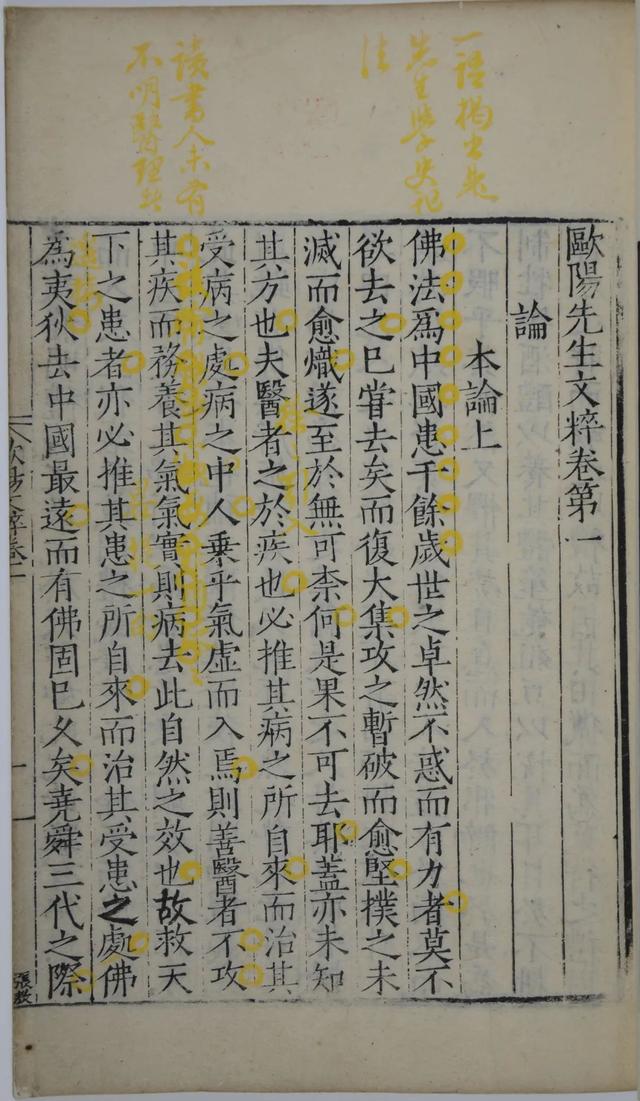 一語揭出是
先生學史記
法
讀書人未有
不明醫理者
歐陽先生文粹卷第一
論
本論上
佛法爲中國患千餘歲世之卓然不惑而有力者莫不
欲去之已甞去矣而復大集攻之暫破而愈堅撲之未
滅而愈熾遂至於無可柰何是果不可去耶蓋亦未知
其方也夫醫者之於疾也必推其病之所自來而治其
受病之處病之中人乗乎氣虛而入焉則善醫者不攻
其疾而務養其氣氣實則病去此自然之效也故救天
下之患者亦必推其患之所自來而治其受患之處佛
為夷狄去中國最遠而有佛固已乆矣堯舜三代之際